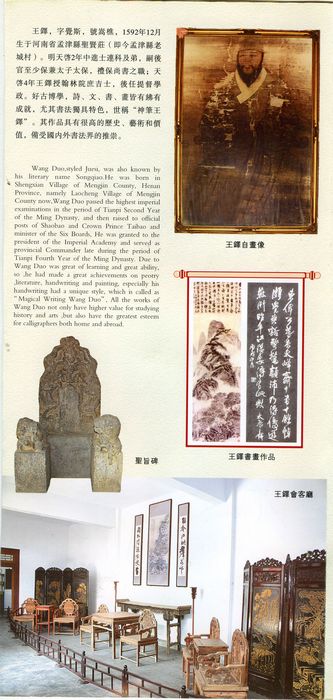 王鐸，字覺斯，號嵩樵，1592年12月
生于河南省孟津縣聖賢莊（即今孟津縣老
城村）。明天啓2年中進士連科及弟，嗣後
官至少保兼太子太保，禮保尚書之職；天
啓4年王鐸授翰林院庶吉士，後任提督學
政。好古博學，詩、文、書、畫皆有綽有
成就，尤其書法獨具特色，世稱“神筆王
鐸”。其作品具有很高的歷史、藝術和價
值，備受國内外書法界的推崇。
Wang Duo,styled Juesi, was also known by
his literary name Songquo.He was born in
Shengxian Village of Mengjin County, Henan
Province, namely Laocheng Village of Mengjin
County now.Wang Duo passed the highest imperial
examinations in the period of Tianpi Second Year
of the Ming Dynasty, and then raised to official
posts of Shaobao and Crown Prince Taibao and
minister of the Six Boards, He was granted to the
president of the Imperial Academy and served as
provincial Commander late during the period of
Tianpi Fourth Year of the Ming Dynasty. Due to
Wang Duo was great of learning and great ability,
so ,he had made a great achievements on peotry
,literature, handwriting and painting, especially his
handwriting had a unique style, which is called as
“Magical Writing Wang Duo”. All the works of
Wang Duo not only have higher value for studying
history and arts ,but also have the greatest esteem
for calligraphers both home and abroad.
王鐸自畫像
聖旨碑
王鐸書畫作品
王鐸會客廳